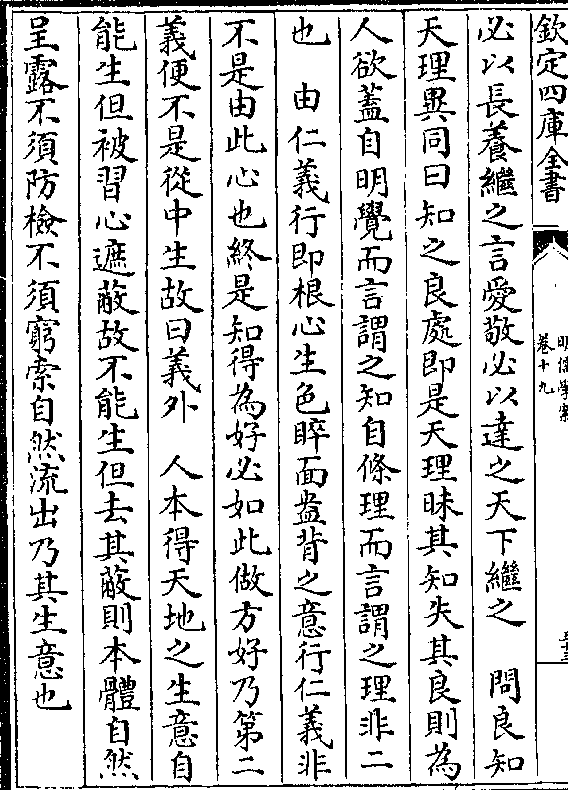 欽定四庫全書
明儒學案
卷十九
必以長養繼之言愛敬必以達之天下繼之　問良知
天理異同曰知之良處即是天理昧其知失其良則為
人欲蓋自明覺而言謂之知自條理而言謂之理非二
也　由仁義行即根心生色睟面盎背之意行仁義非
不是由此心也終是知得為好必如此做方好乃第二
義便不是從中生故曰義外　人本得天地之生意自
能生但被習心遮蔽故不能生但去其蔽則本體自然
呈露不須防檢不須窮索自然流出乃其生意也